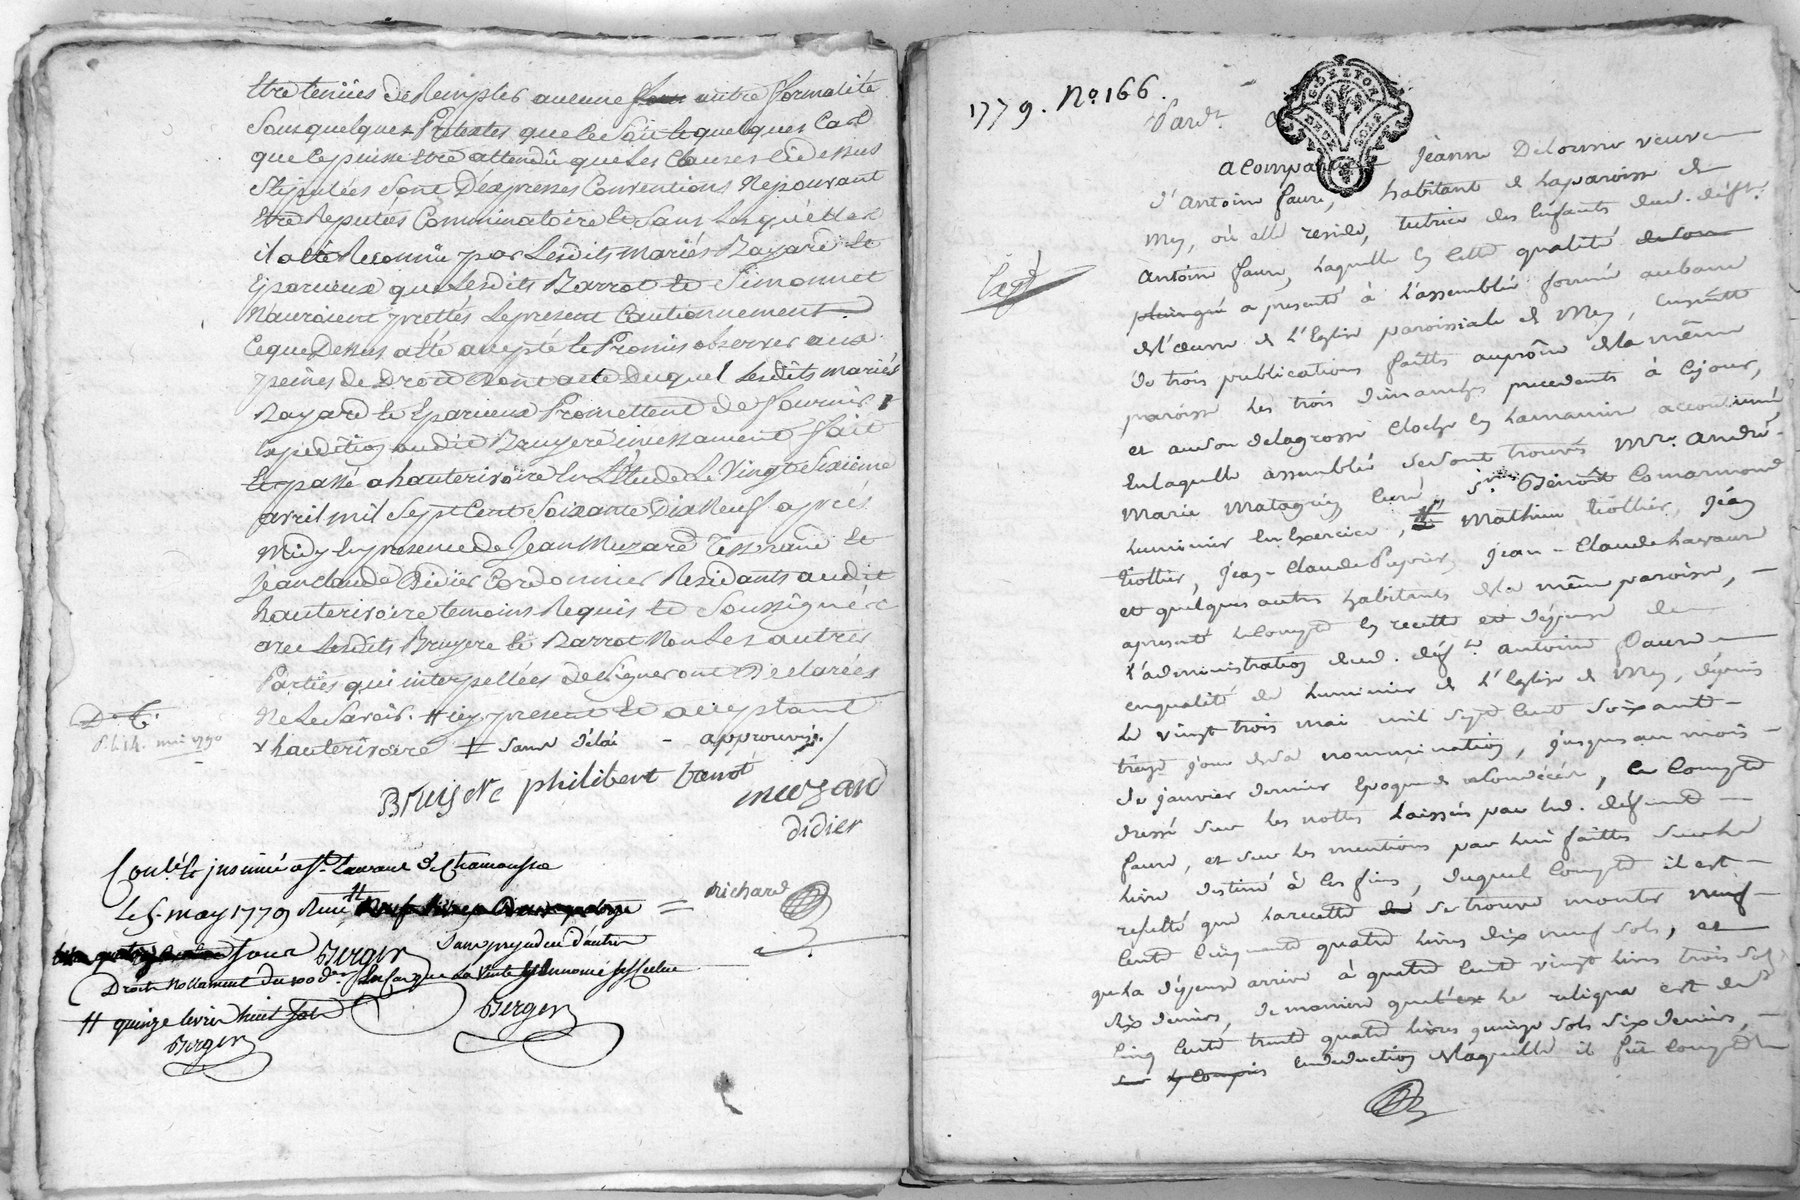 Etre tenües de Remplir aucune autre formalité
Sous quelques Pretextes que ce Soit et quelques Cas
que ce puisse Etre attendû que Les Clauses Cidessus
Stipulées Sont D'expresses Conventions Nepouvant
Etre Reputées Comminatoire et Sans Lesquelles
il a eté Reconnû par Lesdits mariés Bayard et
Eparvieux que Lesdits Barrot et Simonnet
N'auroient prettés Lepresent Cautionnement
Ceque Dessus a été accepté et Promis observer aux
peines de Droit Dont acte Duquel Lesdits mariés
Bayard et Eparvieux Promettent de fournir
Expedition audit Bruyere incessament fait
Et passé a hauterivoire En L'Etude Le Vingt Sixieme
avril mil Sept Cent Soixante Dix Neuf après
Midy En presence de Jean Muzard Tisserand et
Jean Claude Didier Cordonnier Residants audit
hauterivoire temoins Requis et Soussignés
avec Lesdits Bruyere et Barrot Non Les autres
Parties qui interpellées de Signer ont Declarées
Ne Le Savoir. # icy present et acceptant
D. E.
mai 1790
+ hauterivoire # sans délai - approuvés /
Bruyere philibert barrot
muzard
didier
Conlé. Et insinué a St. Laurant de Chamousse
Le 5. may 1779 Reçu #
richard
Berger Sans prejudice d'autre
Droits Nottament du 100 d.
# quinze livres huit sols
Berger
Berger
1779. No. 166.
Pard.t
a Comparu Jeanne Delorme veuve
d'Antoine faure, habitante de la paroisse de
Mey, où elle reside, tutrice des Enfants dud. déft.
Exp.é
Antoine faure, laquelle En cette qualité
a presenté à l'assemblée formée au banc
de l'œuvre de l'Eglise paroissiale de Mey, Ensuitte
de trois publications faittes au prône de la même
paroisse les trois dimanches precedents à Ce jour,
et au son de la grosse Cloche En la maniere accoutumée
En laquelle assemblée se sont trouvés Mre. André
Marie Matagrin Curé, Benoît Comarmond
Luminier En Exercice, Mathieu tiollier, Jean
tiollier, Jean-Claude Peyrier, Jean-Claude
et quelques autres habitants de la même paroisse,
a presenté le Compte En recette et dépense de
l'administration dud. déft. antoine faure
en qualité de Luminier de l'Eglise de Mey, depuis
le vingt trois mai mil sept Cent soixante
treize jour de sa nomination, jusques au mois
de janvier dernier Epoque de son décés, ce Compte
dressé sur les nottes laissées par led. défunt
faure, et sur les mentions par lui faittes sur le
livre destiné à Ces fins, duquel Compte il est
resulté que la recette se trouve monter neuf
Cent Cinquante quatre livres dix neuf sols, et
que la dépense arrive à quatre Cent vingt livres trois sols
dix deniers, de maniere que le reliqua est de
Cinq Cent trente quatre livres quinze sols six deniers,
En deduction de laquelle il fût Compté